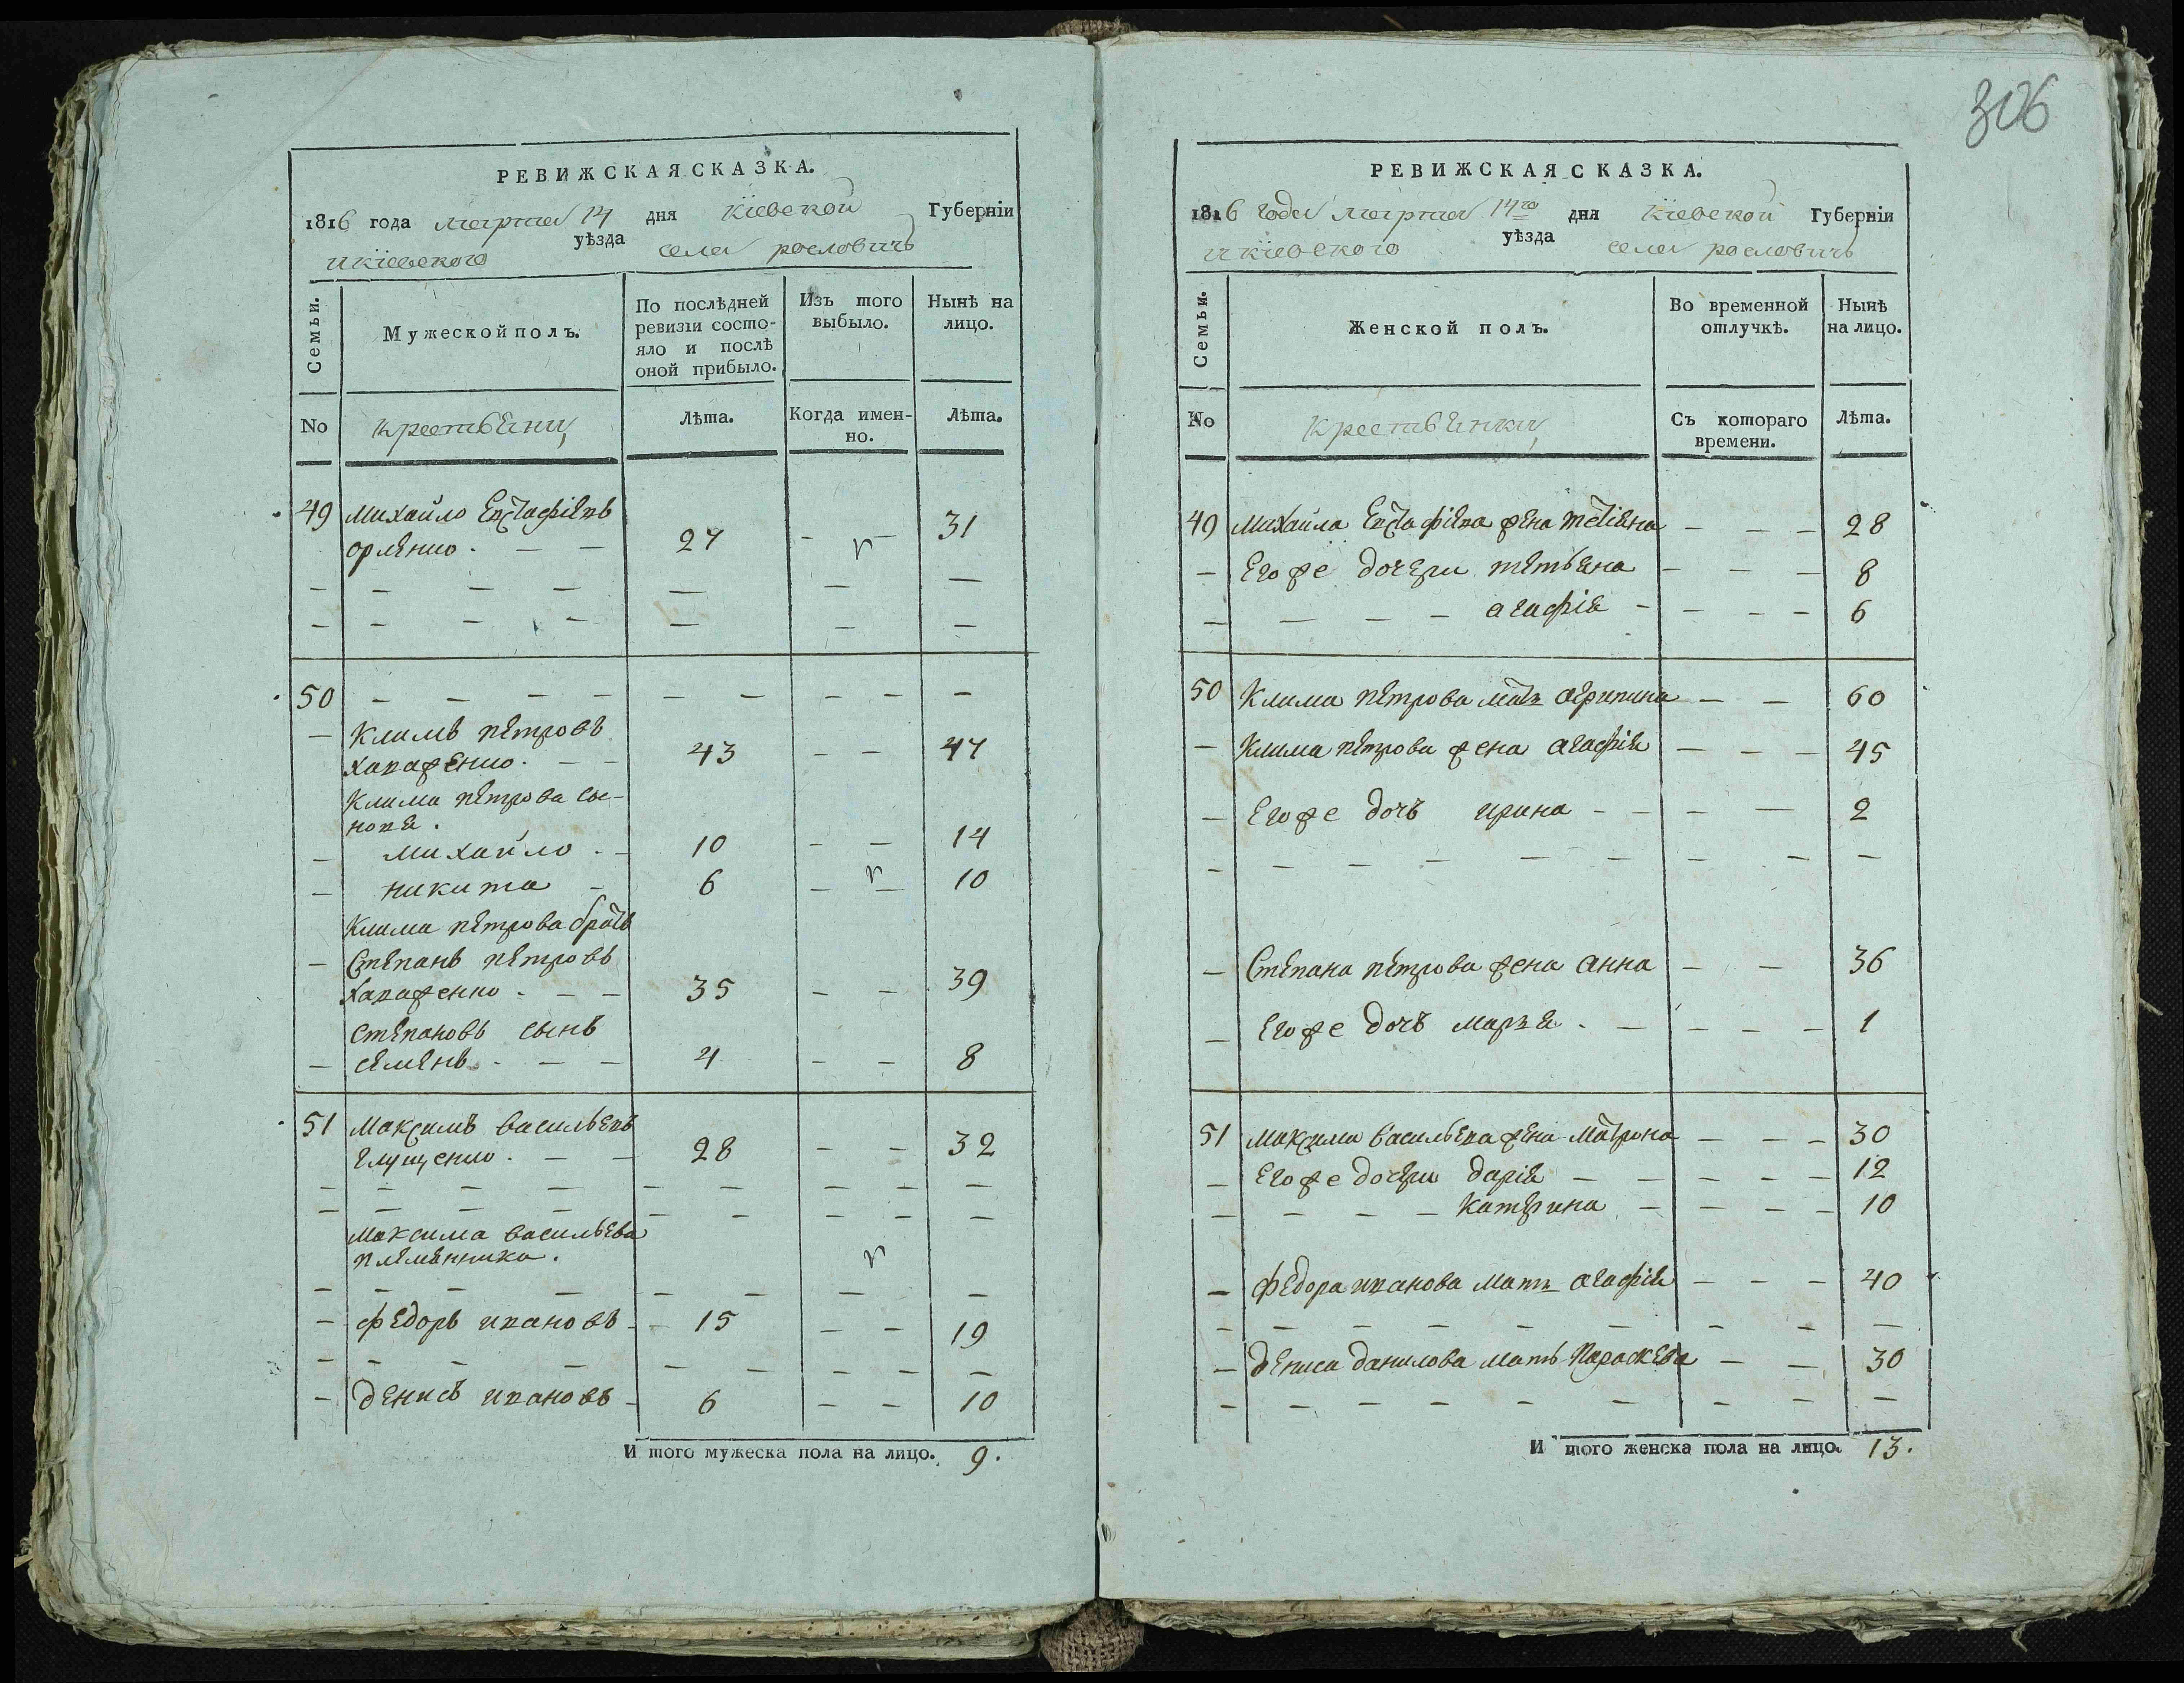 306
РЕВИЖСКАЯ СКАЗКА.
1816 года марта 14 дня Кіевской Губерніи
и кіевского уѣзда села рословичъ
Семьи.
Мужеской полъ.
По послѣдней ревизіи состо-
яло и послѣ
оной прибыло.
Изъ того
выбыло.
Нынѣ на
лицо.
No
крестьяни,
Лѣта.
Когда имен-
но.
Лѣта.
49 Михайло Евстафіевъ
орленко. — — 27 — — 31
50 — — — — — — — — —
— Климъ петровъ
43 — — 47
Клима петрова сы-
новя.
— михайло . — 10 — — 14
— никита — 6 — — 10
Клима петрова братъ
— Степанъ петровъ
35 — — 39
степановъ сынъ
— семенъ — — — 4 — — 8
51 Максимъ васильевъ
глущенко . — — 28 — — 32
Максима васильева
племянника .
— федоръ ивановъ — 15 — — 19
— денисъ ивановъ — 6 — — 10
И того мужеска пола на лицо. 9.
РЕВИЖСКАЯ СКАЗКА.
1816 года марта 14го дня Кіевской Губерніи
и кіевского уѣзда села рословичъ
Семьи.
Женской полъ.
Во временной
отлучкѣ.
Нынѣ
на лицо.
No
крестьянки,
Съ котораго
времени.
Лѣта.
49 Михаила Евстафіева жена — — — 28
— Его же дочери татьяна — — — 8
— — — — агафія — — — — 6
50 Клима петрова мать агрипина — — 60
— Клима петрова жена агафія — — — 45
— Его же дочъ ирина — — — — 2
— Степана петрова жена анна — — 36
— Его же дочъ маръя . — — — — 1
51 максима васильева жена матрона — — — 30
— Его же дочери дарія — — — — — 12
— — — — катерина — — — — 10
— федора иванова мать агафія — — — 40
— дениса данилова мать параскева — — 30
И того женска пола на лицо. 13.